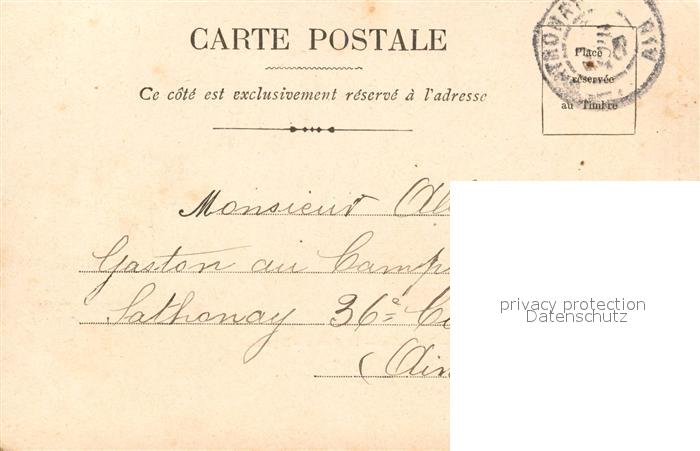 CARTE POSTALE
Place
réservée
au Timbre
Ce côté est exclusivement réservé à l'adresse
Monsieur Al
Gaston au Camp
Sathonay 36e Co
(Ain
privacy protection
Datenschutz